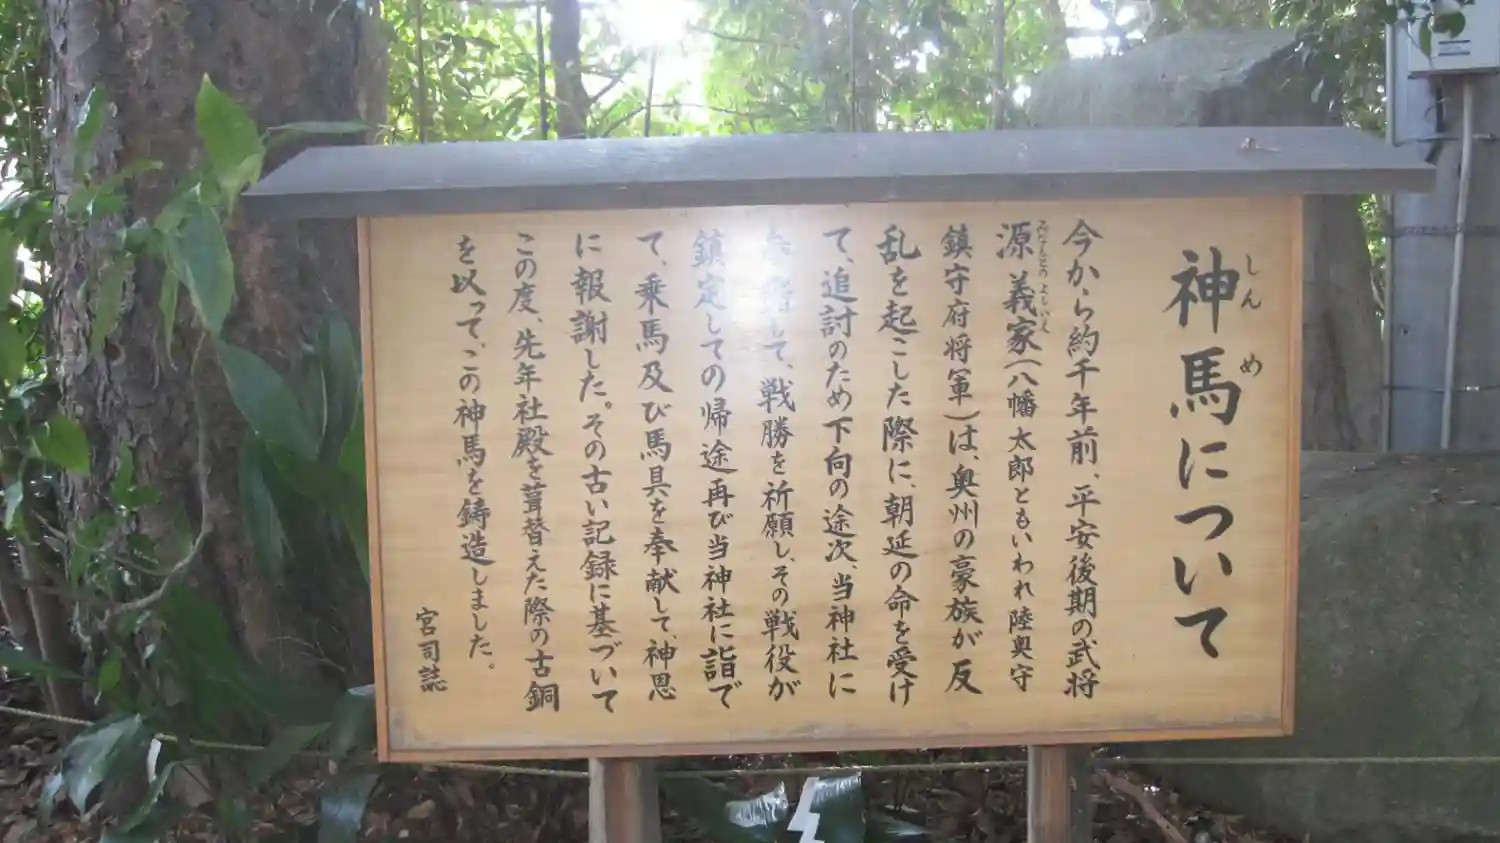 神馬について
しんめ
今から約千年前、平安後期の武将
源義家(八幡太郎ともいわれ陸奥守
みなもとのよしいえ
鎮守府将軍)は、奥州の豪族が反
乱を起こした際に、朝廷の命を受け
て、追討のため下向の途次、当神社に
して、戦勝を祈願し、その戦役が
鎮定しての帰途再び当神社に詣で
て、乗馬及び馬具を奉献して、神恩
に報謝した。その古い記録に基づいて
この度、先年社殿を葺替えた際の古銅
を以って、この神馬を鋳造しました。
宮司誌